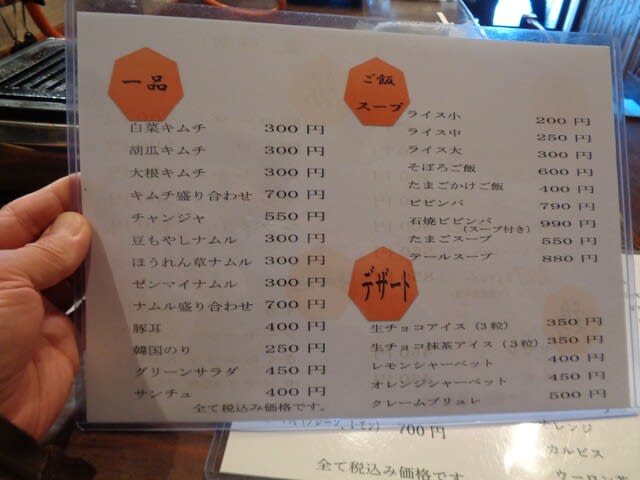 一品
白菜キムチ 300 円
胡瓜キムチ 300 円
大根キムチ 300 円
キムチ盛り合わせ 700 円
チャンジャ 550 円
豆もやしナムル 300 円
ほうれん草ナムル 300 円
ゼンマイナムル 300 円
ナムル盛り合わせ 700 円
豚耳 400 円
韓国のり 250 円
グリーンサラダ 450 円
サンチュ 400 円
全て税込み価格です。
ご飯
スープ
ライス小 200 円
ライス中 250 円
ライス大 300 円
そぼろご飯 600 円
たまごかけご飯 400 円
ビビンバ 790 円
石焼ビビンバ 990 円
(スープ付き)
たまごスープ 550 円
テールスープ 880 円
デザート
生チョコアイス(3粒) 350 円
生チョコ抹茶アイス(3粒) 350 円
レモンシャーベット 400 円
オレンジシャーベット 450 円
クレームブリュレ 500 円
700 円
全て税込み価格です
オレンジ
カルピス
ウーロン茶